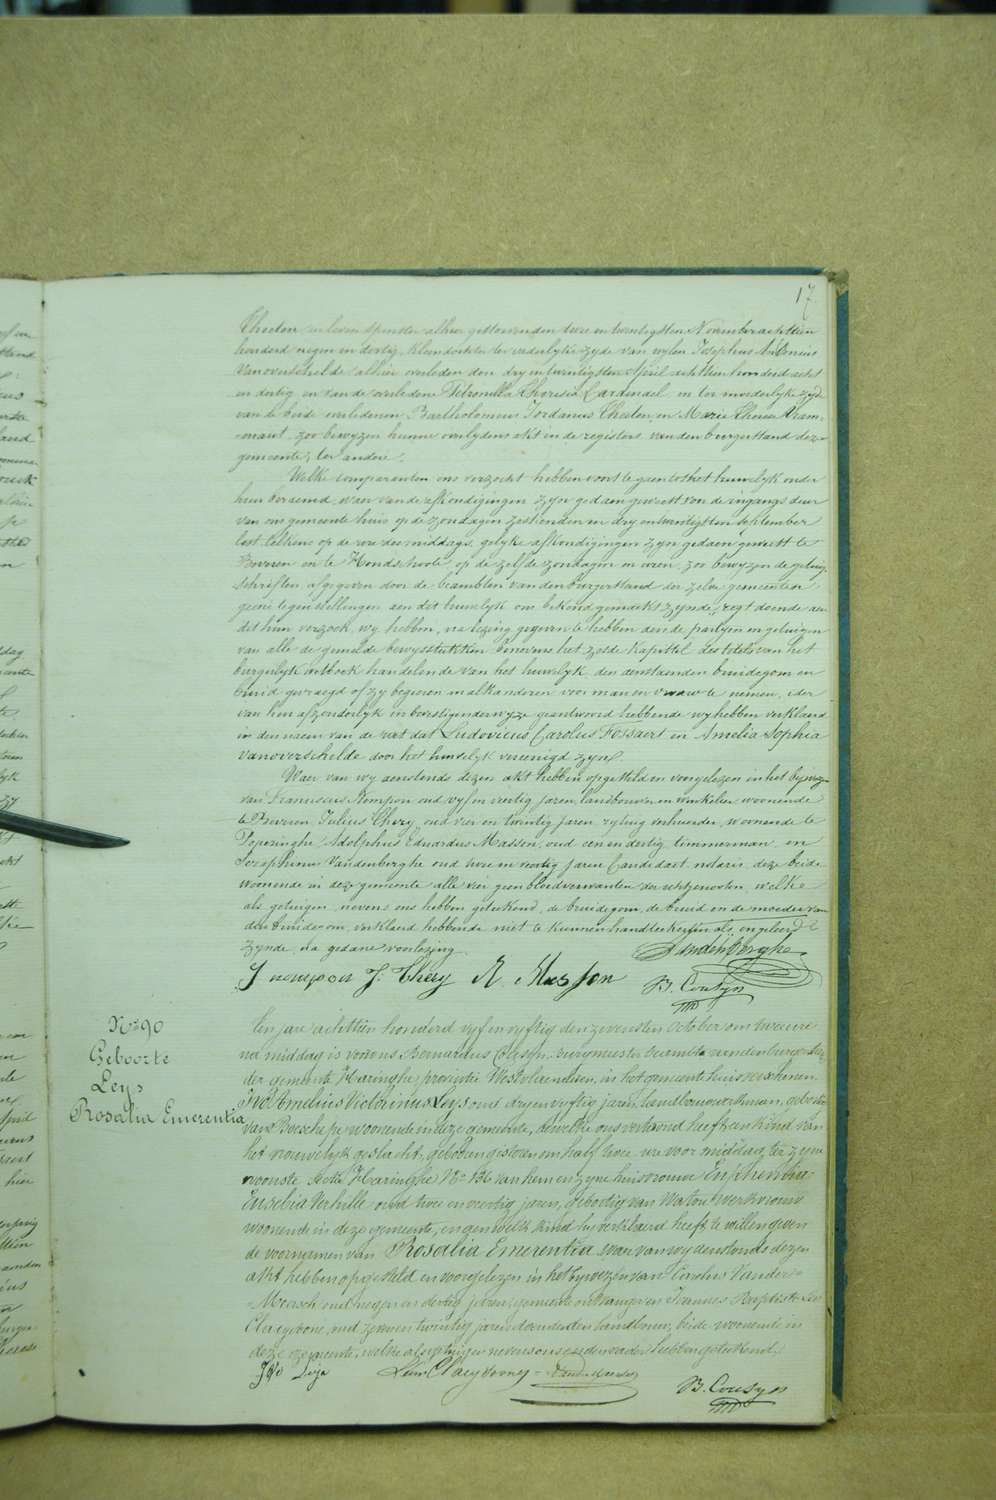 17
Theeten in leven spinster alhier gestorven den twee en twintigsten November achttien
honderd negen en dertig, kleindochter ter vaderlyke zyde van wylen Josephus Antonius
Vanoverschelde alhier overleden den dry en twintigsten April achttien honderd acht
en dertig en van de overledene Petronilla Theresia Cardinael en ter moederlyke zyde
van de beide overledenen Bartholomeus Jordanus Theeten en Marie Therese Vram-
-mout zoo bewyzen hunne overlydens akt in de registers van den burgerstand dezer
gemeente, ter andere.
Welke comparanten ons verzocht hebben voort te gaen tot het huwelyk onder
hen beraemd, waer van de afkondigingen zyn gedaen geweest voor de ingangs deur
van ons gemeente huis op de zondagen zestienden en dry en twintigsten September
lest telkens op de ure des middags, gelyke afkondigingen zyn gedaen geweest te
Beveren en te Hondschoote op de zelfde zondagen en uren, zoo bewyzen de getuig-
schriften afgegeven door de beambten van den burgerstand der zelve gemeenten
geene tegenstellingen aen dit huwelyk ons bekend gemaekt zynde, regt doende aen
dit hun verzoek, wy hebben, na lezing gegeven te hebben aen de partyen en getuigen
van alle de gemelde bewysstukken benevens het zesde kapittel des titels van het
burgerlyk wetboek handelende van het huwelyk, den aenstaenden bruidegom en
bruid gevraegd of zy begeeren malkanderen voor man en vrouw te nemen, ider
van hen afzonderlyk in bevestigender wyze geantwoord hebbende wy hebben verklaerd
in den naem van de wet dat Ludovicus Carolus Fossaert en Amelia Sophia
Vanoverschelde door het huwelyk vereenigd zyn.
Waer van wy aenstonds dezen akt hebben opgesteld en voorgelezen in het bywezen
van Franciscus Rompon oud vyf en veertig jaren, landbouwer en winkelier woonende
te Beveren Julius Thery oud vier en twintig jaren rytuig verhuerder, woonende te
Poperinghe, Adolphus Eduardus Masson, oud een en dertig timmerman, en
Josephinus Vandenberghe oud twee en veertig jaren Candidaet notaris, deze beide
woonende in deze gemeente alle vier geen bloedverwanten der echtgenooten, welke
als getuigen nevens ons hebben geteekend, de bruidegom, de bruid en de moeder van
den bruidegom, verklaerd hebbende niet te kunnen handteekenen als ongeleerd
zynde na gedane voorlezing
Vandenberghe
J. Thery A. Masson B. Cousyn
No 90
Geboorte
Leys
Rosalia Emerentia
Ten jare achttien honderd vyf en vyftig den zevensten October om twee ure
na middag is voor ons Bernardus Cousyn, burgmeester beambte van den burgerstand
der gemeente Haringhe, provintie Westvlaenderen, in het gemeente huis verschenen
Ivo Amelius Victorinus Leys oud dry en vyftig jaren, landbouwwerkman, geboortig
van Boeschepe woonende in deze gemeente, dewelke ons vertoond heeft een kind van
het vrouwelyk geslacht, geboren gisteren om half twee ure voor middag, ter zyne
woonste, sectie Haringhe No 136 van hem en zyne huisvrouw Euphemia
Eurelia Verhille oud twee en veertig jaren, geboortig van Watou, werkvrouw
woonende in deze gemeente, en gen welk kind hy verklaerd heeft te willen geven
de voornamen van Rosalia Emerentia waer van wy aenstonds dezen
akt hebben opgesteld en voorgelezen in het bywezen van Carolus Vander=
=Meersch, oud negen en dertig jaren, gemeente ontvanger en Joannes Baptiste Leo
Claeysoone, oud zeven en twintig jaren doenende landbouw, beide woonende in
deze gemeente, welke als getuigen nevens ons en den vader hebben geteekend.
Ivo Leys Leon Claeysoone Vandermeersch
B. Cousyn